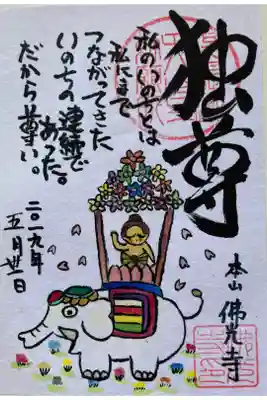 独尊
私のいのちとは
私にまで
つながってきた
いのちの連続で
あった。
だから尊い。
二〇一九年
五月廿一日
本山 佛光寺